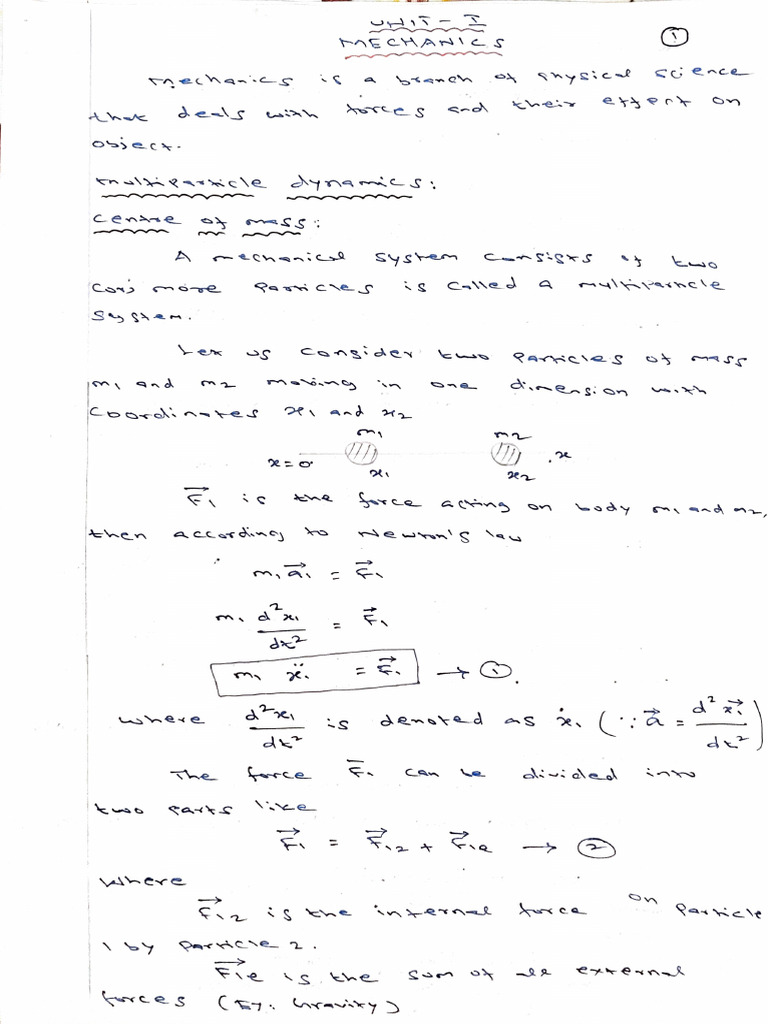 UNIT-I
MECHANICS
①
Mechanics is a branch of physical science
that deals with forces and their effect on
object.
Multiparticle dynamics:
Centre of mass:
A mechanical system consists of two
(or) more particles is called a multiparticle
system.
Let us consider two particles of mass
m₁ and m₂ moving in one dimension with
coordinates x₁ and x₂
m₁ m₂
x=0 x₁ x₂ x
F⃗₁ is the force acting on body m₁ and m₂,
then according to Newton's law
m₁a⃗₁ = F⃗₁
m₁ d²x₁/dt² = F⃗₁
m₁ ẍ₁ = F⃗₁ → ①.
where d²x₁/dt² is denoted as ẋ₁ (∵ a⃗ = d²x⃗₁/dt²)
The force F̅₁ can be divided into
two parts like
F⃗₁ = F⃗₁₂ + F⃗₁e → ②
Where
F⃗₁₂ is the internal force on particle
1 by particle 2.
F⃗₁e is the sum of all external
forces (Ex: Gravity)